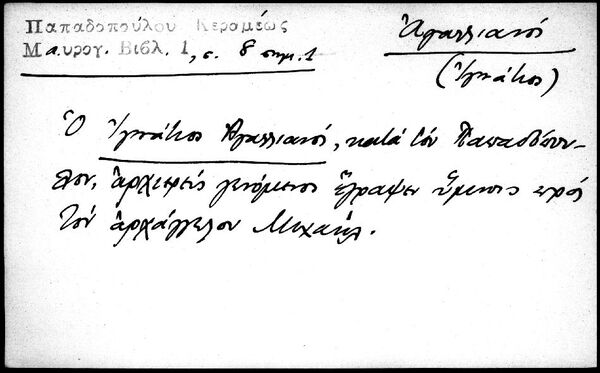 Παπαδοπούλου Κεραμέως
Μαυρογ. Βιβλ. 1, σ. 8 σημ. 1
Ἀγαλλιανός
(Ἰγνάτιος)
Ὁ Ἰγνάτιος Ἀγαλλιανός, κατά τόν Παπαδόπου-
λον, ἀρχιερεύς γενόμενος ἔγραψεν ὕμνους πρός
τόν ἀρχάγγελον Μιχαήλ.